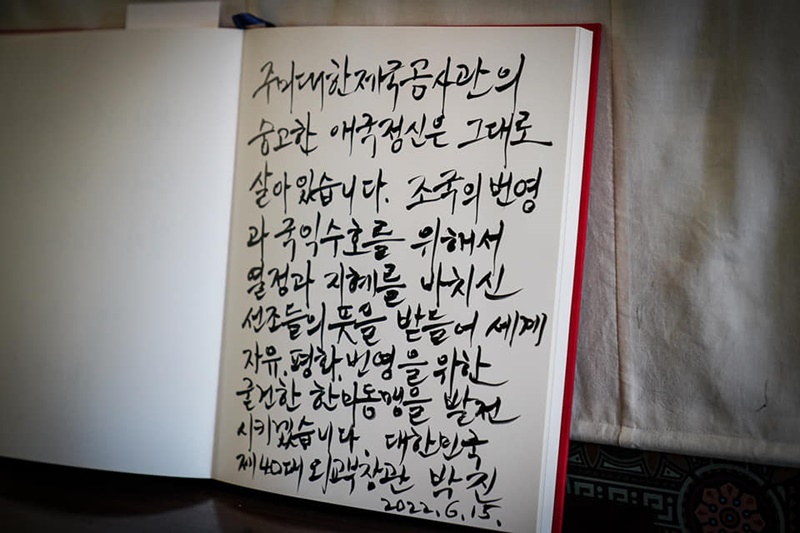 주미대한제국공사관의
숭고한 애국정신은 그대로
살아 있습니다. 조국의 번영
과 국익수호를 위해서
열정과 지혜를 바치신
선조들의 뜻을 받들어 세계
자유, 평화, 번영을 위한
굳건한 한미동맹을 발전
시키겠습니다. 대한민국
제40대 외교부장관 박진
2022. 6. 15.